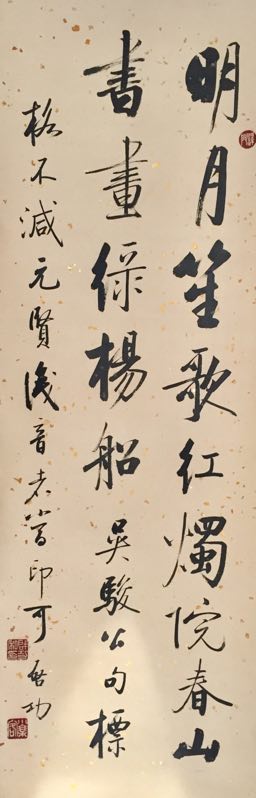 明月笙歌紅燭院春山
書畫綠楊船 吳駿公句標
格不減元賢識音者當印可 啓功